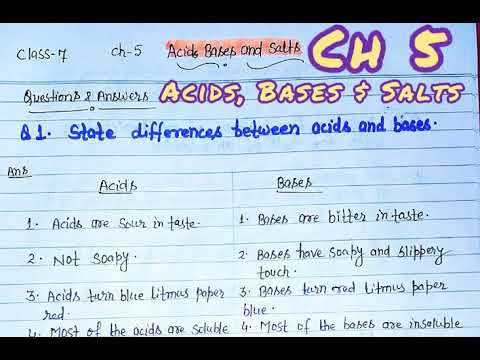 Class-7 Ch-5 Acids Bases and Salts
Ch 5
Questions & Answers
Acids, Bases & Salts
Q1. State differences between acids and bases.
Ans
Acids Bases
1. Acids are sour in taste. 1. Bases are bitter in taste.
2. Not soapy. 2. Bases have soapy and slippery
touch.
3. Acids turn blue litmus paper 3. Bases turn red litmus paper
red. blue.
4. Most of the acids are soluble 4. Most of the bases are insoluble